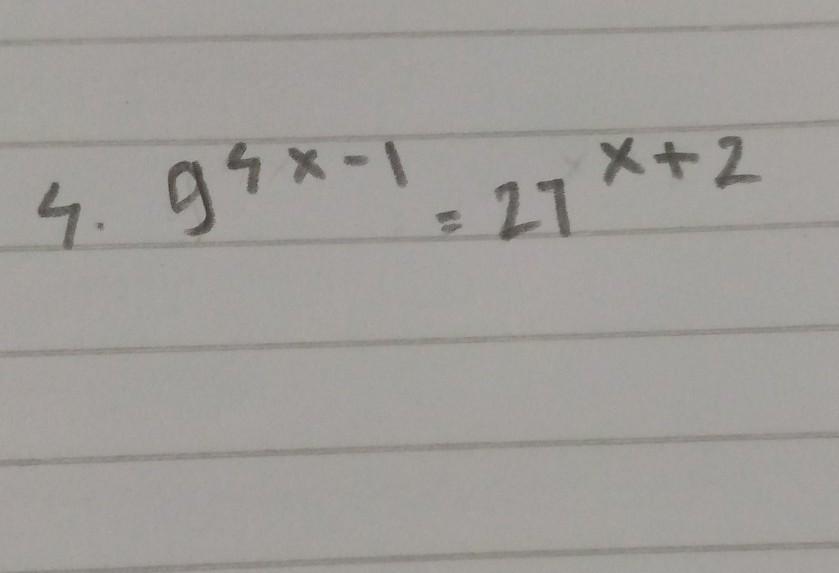 4. 9^{4x-1} = 27^{x+2}